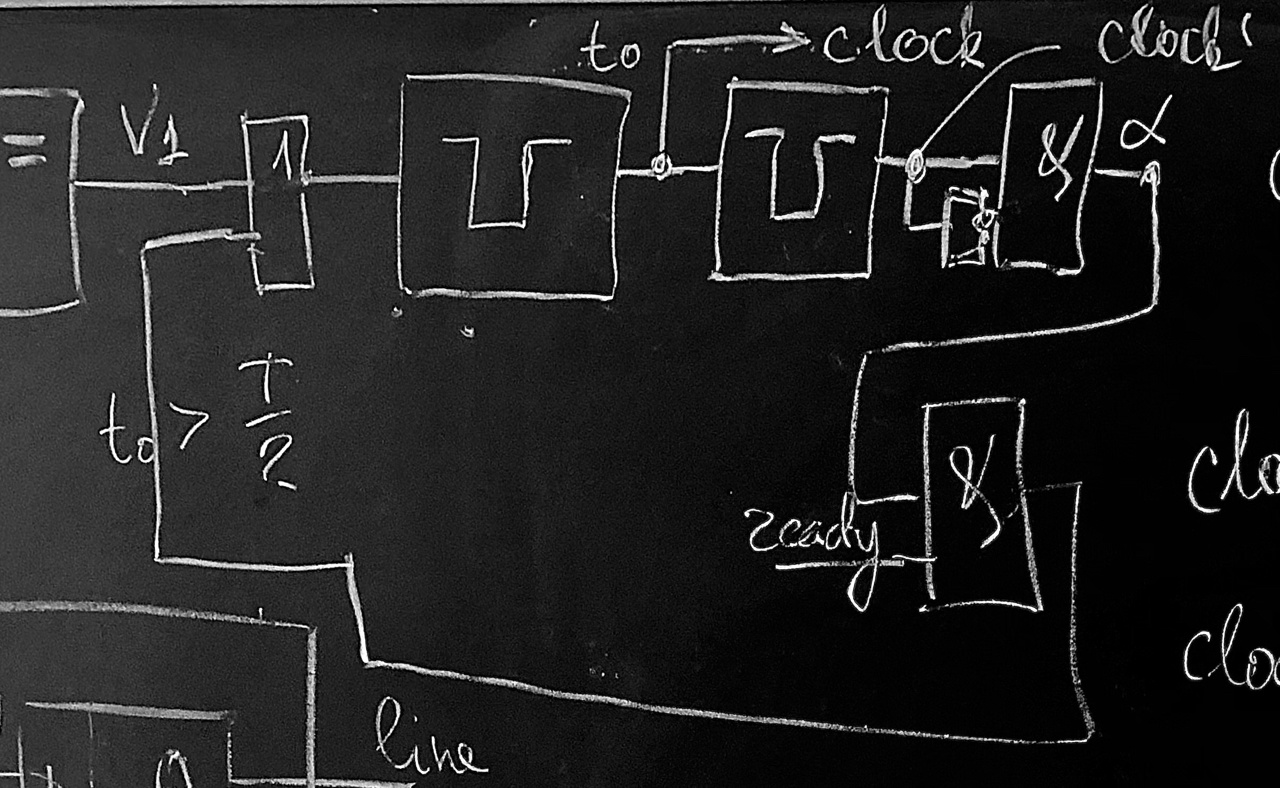 to
clock
clock'
=
V1
1
&
α
to > T/2
&
ready
clo
clo
line